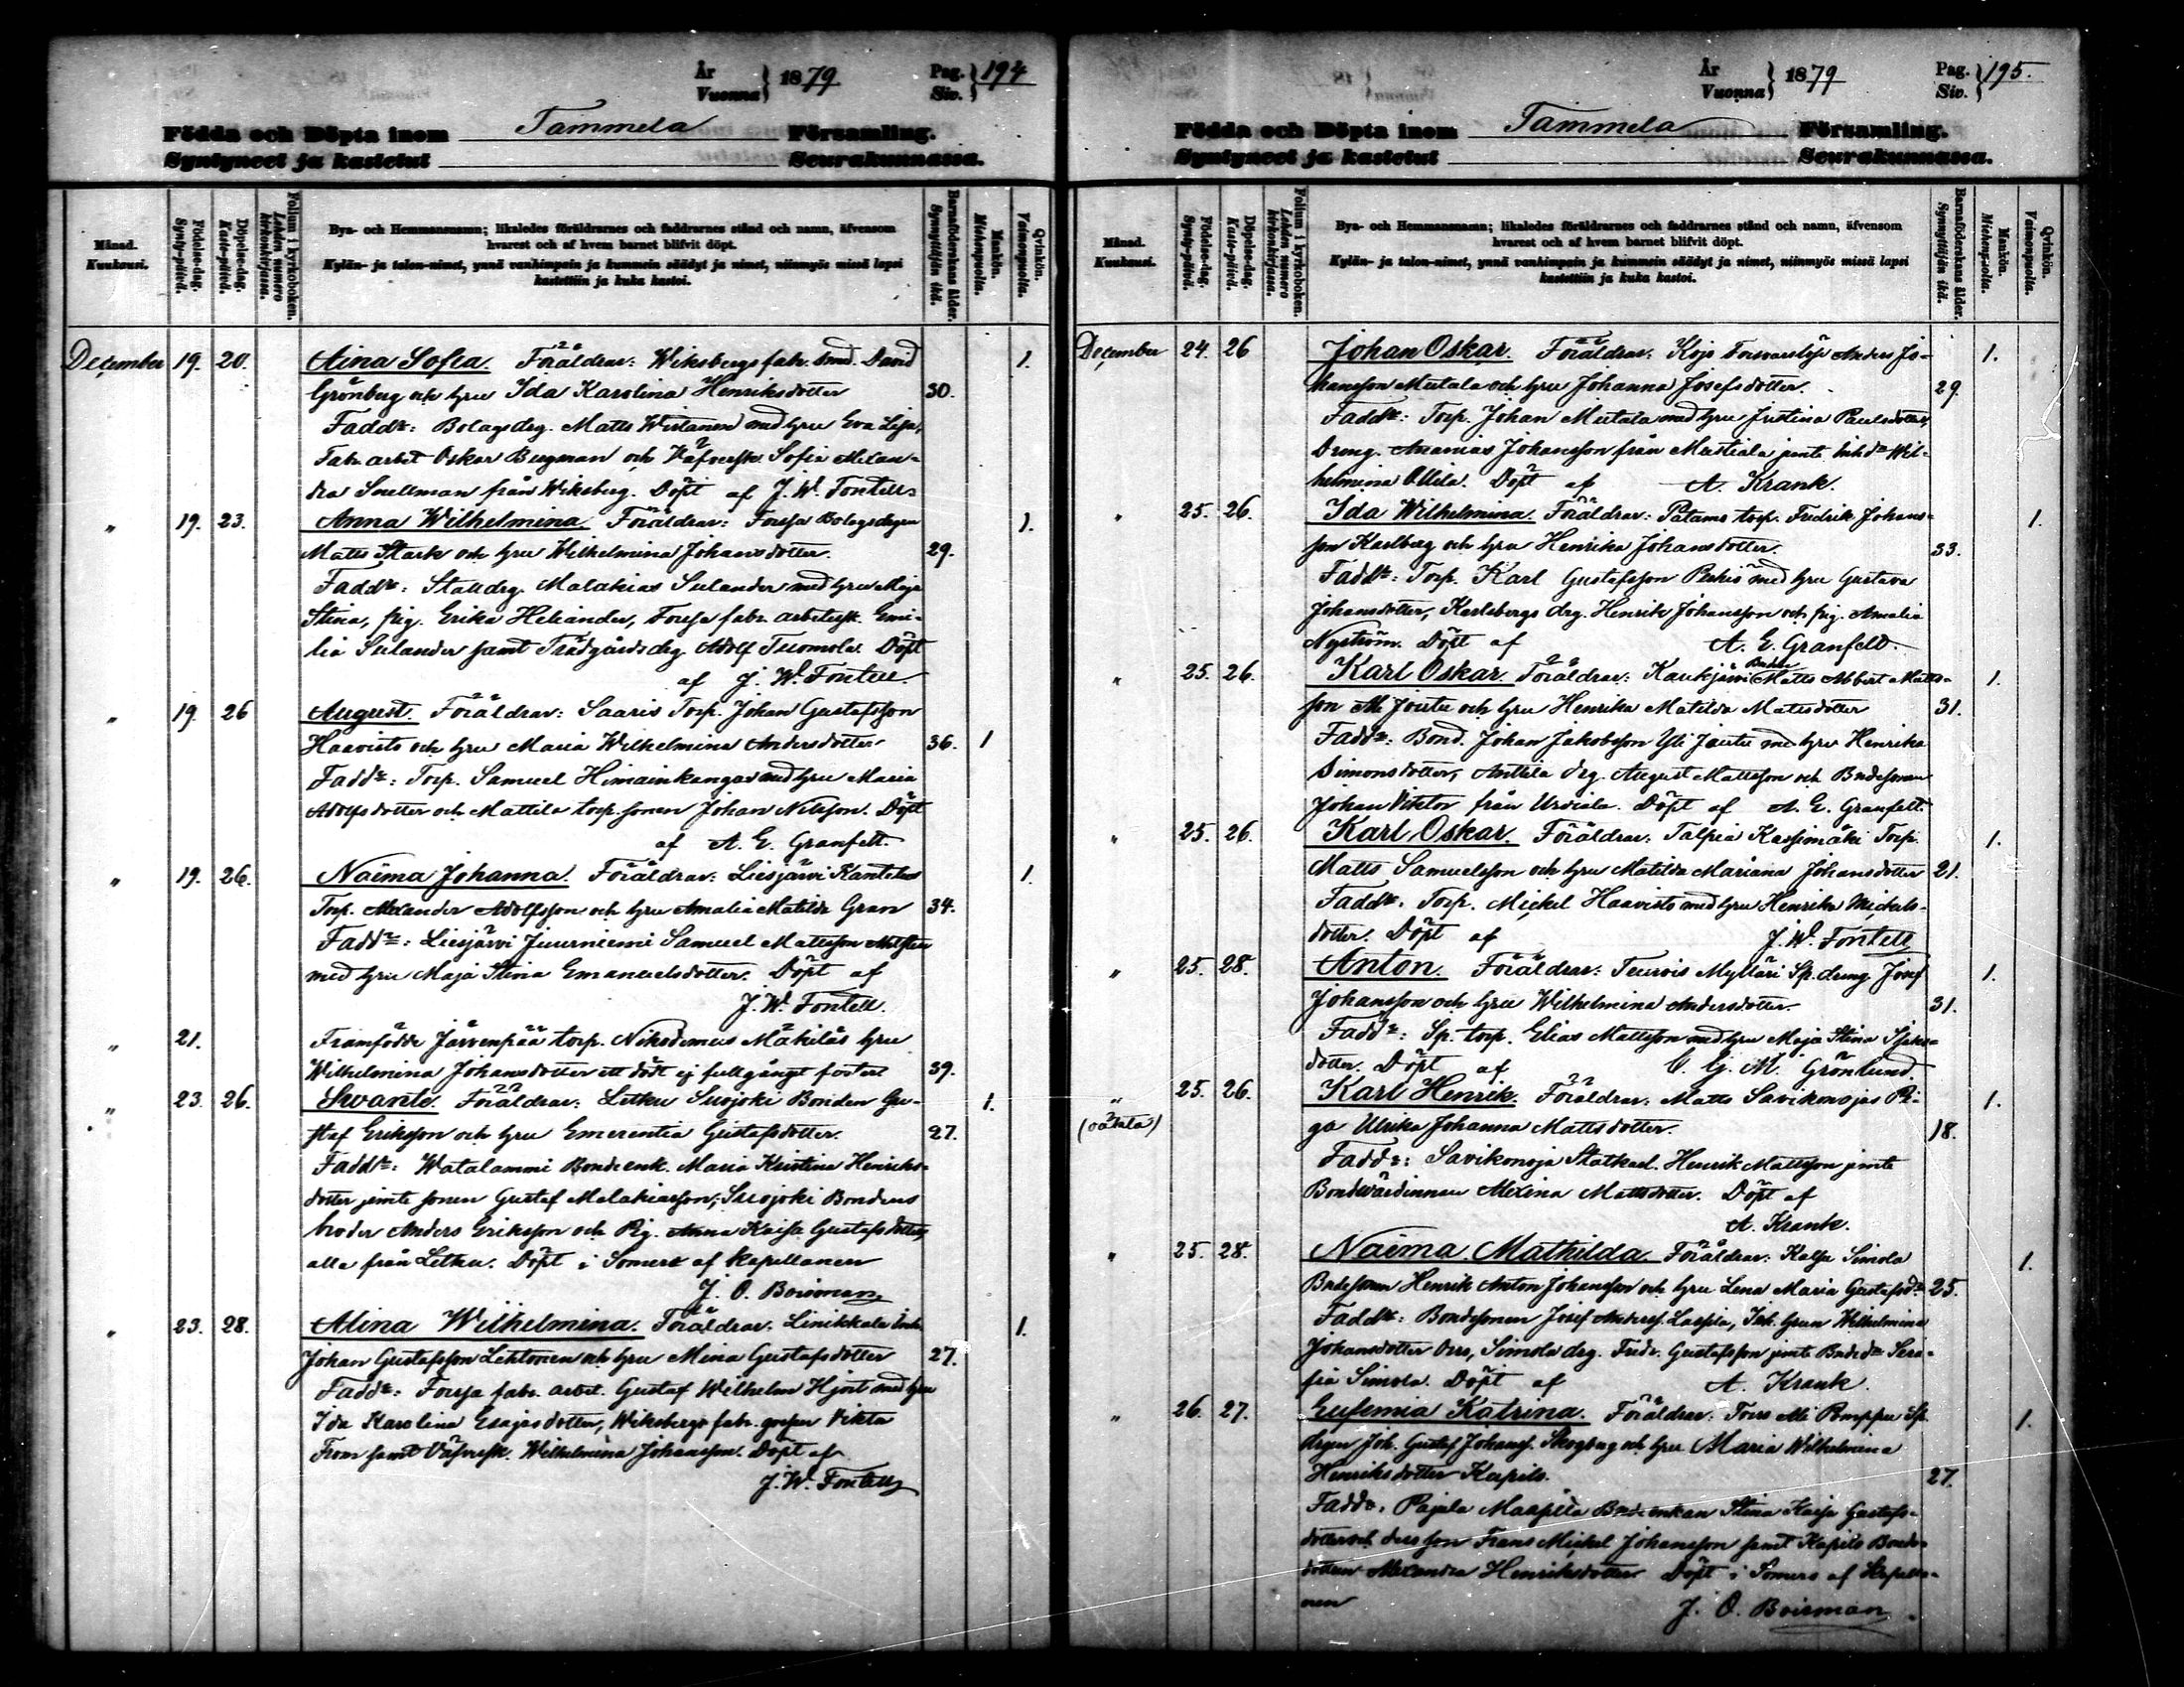 År
Vuonna } 1879 Pag.
Siv. } 194
Födda och Döpta inom Tammela Församling.
Syntyneet ja kastetut Seurakunnassa.
Månad.
Kuukausi.
Födelse-dag.
Synty-päivä.
Döpelse-dag.
Kaste-päivä.
Folium i kyrkoboken.
Lehden numero kirkonkirjassa.
Bya- och Hemmansnamn; likaledes föräldrarnes och faddrarnes stånd och namn, äfvensom
hvarest och af hvem barnet blifvit döpt.
Kylän- ja talon-nimet, ynnä vanhimpain ja kummein säädyt ja nimet, niinmyös missä lapsi
kastettiin ja kuka kastoi.
Barnaföderskans ålder.
Synnyttäjän ikä.
Mankön.
Miehenpuolta.
Qvinkön.
Vaimonpuolta.
December 19. 20. Aina Sofia. Föräldrar: Wiksbergs fabr. smed. David 1.
Grönberg och hru Ida Karolina Henriksdotter 30.
Faddr: Bolagsdrg. Matts Wirtanen med hru Eva Lisa,
Fabr. arbet Oskar Bergman och Väfversk. Sofia
Snellman från Wiksberg. Döpt af J. W. Fontell
" 19. 23. Anna Wilhelmina Föräldrar: Forssa Bolagsdrgen 1.
Matts Stark och hru Wilhelmina Johansdotter. 29.
Faddr: Stalldrg. Malakias Selander med hru Maja
Stina, pig. Erika Helander, Forssa fabr. arbetersk. Emi-
lia Selander samt Trädgårdsdrg Adolf Tuomola. Döpt
af J. W. Fontell.
" 19. 26 August. Föräldrar: Saaris Torp. Johan Gustafsson
Haavisto och hru Maria Wilhelmina Andersdotter 36. 1
Faddr: Torp. Samuel Himainkangas med hru Maria
Adolfsdotter och Mattila torp. sonen Johan Nilsson. Döpt
af A. E. Granfelt.
" 19. 26. Naëma Johanna. Föräldrar: Liesjärvi Kantelus 1.
Torp. Alexander Adolfsson och hru Amalia Matilda Gran 34.
Faddr: Liesjärvi Juurniemi Samuel Mattsson
med hru Maja Stina Emanuelsdotter. Döpt af
J. W. Fontell.
" 21. Framfödde Järvenpää torp. Nikodemus Mäkiläs hru
Wilhelmina Johansdotter ett dödt ej fullgånget foster 39.
" 23. 26. Swante. Föräldrar: Letku Suojoki Bonden Gu- 1.
staf Eriksson och hru Emerentia Gustafsdotter. 27.
Faddr: Watalammi Bondeenk. Maria Kristina Henriks-
dotter jemte sonen Gustaf Malakiasson, Suojoki Bondens
broder Anders Eriksson och Pig. Anna Kaisa Gustafsdotter,
alla från Letku. Döpt i Somero af kapellanen
J. O. Boisman
" 23. 28. Alina Wilhelmina. Föräldrar. Linikkala Inh. 1.
Johan Gustafsson Lehtonen och hru Mina Gustafsdotter 27.
Faddr: Forssa fabr. arbet. Gustaf Wilhelm Hjort med hru
Ida Karolina Esajasdotter, Wiksbergs fabr. gossen Viktor
From samt Väfversk. Wilhelmina Johansson. Döpt af
J. W. Fontell
År
Vuonna } 1879 Pag.
Siv. } 195.
Födda och Döpta inom Tammela Församling.
Syntyneet ja kastetut Seurakunnassa.
Månad.
Kuukausi.
Födelse-dag.
Synty-päivä.
Döpelse-dag.
Kaste-päivä.
Folium i kyrkoboken.
Lehden numero kirkonkirjassa.
Bya- och Hemmansnamn; likaledes föräldrarnes och faddrarnes stånd och namn, äfvensom
hvarest och af hvem barnet blifvit döpt.
Kylän- ja talon-nimet, ynnä vanhimpain ja kummein säädyt ja nimet, niinmyös missä lapsi
kastettiin ja kuka kastoi.
Barnaföderskans ålder.
Synnyttäjän ikä.
Mankön.
Miehenpuolta.
Qvinkön.
Vaimonpuolta.
December 24. 26 Johan Oskar. Föräldrar: Kojo Anders Jo- 1.
hansson Metala och hru Johanna Josefsdotter. 29.
Faddr: Torp. Johan Metala med hru Justina Paulsdotter,
Dreng. Ananias Johansson från Mustiala jemte Wil-
helmina Ollila. Döpt af A. Krank.
" 25. 26. Ida Wilhelmina. Föräldrar: Patamo torp. Fredrik Johans- 1.
son Karlberg och hru Henrika Johansdotter. 33.
Faddr: Torp. Karl Gustafsson med hru Gustava
Johansdotter, Karlsbergs drg. Henrik Johansson och pig. Amalia
Nyström. Döpt af A. E. Granfelt.
" 25. 26. Karl Oskar. Föräldrar: Kaukjärvi Bonden Matts Albert Matts- 1.
son Ali Jouttu och hru Henrika Matilda Mattsdotter 31.
Faddr: Bond. Johan Jakobsson Yli Jouttu med hru Henrika
Simonsdotter, Anttila drg. August Mattsson och Bndesonen
Johan Viktor från Urdiala. Döpt af A. E. Granfelt.
" 25. 26. Karl Oskar. Föräldrar: Talpia Kassimäki Torp. 1.
Matts Samuelsson och hru Matilda Mariana Johansdotter 21.
Faddr. Torp. Mickel Haavisto med hru Henrika Mickels-
dotter. Döpt af J. W. Fontell
" 25. 28. Anton. Föräldrar: Teurois Mylläri Sp. dreng Josef 1.
Johansson och hru Wilhelmina Andersdotter. 31.
Faddr: Sp. torp. Elias Mattsson med hru Maja Stina
dotter. Döpt af C. G. M. Grönlund
" 25. 26. Karl Henrik. Föräldrar: Matts Savikonojas Pi- 1.
(oäkta) ga Ulrika Johanna Mattsdotter. 18.
Faddr: Savikonoja Statkarl. Henrik Mattsson jemte
Bondvärdinnan Alexina Mattsdotter. Döpt af
A. Krank.
" 25. 28. Naëma Mathilda. Föräldrar: Kalsu Simola 1.
Bndesonen Henrik Anton Johansson och hru Lena Maria Gustafsdr 25.
Faddr: Bondesonen Josef Anderss. Laspila, Inh. hrun Wilhelmina
Johansdotter Oers, Simola drg. Fredr. Gustafsson jemte Bndedr Sera-
fia Simola. Döpt af A. Krank.
" 26. 27. Eufemia Katrina. Föräldrar: Torro Ali Pomppu Sp. 1.
drgen Joh. Gustaf Johanss. Skogberg och hru Maria Wilhelmina
Henriksdotter Kapila. 27.
Faddr. Pajula Bndeenkan Stina Kaisa Gustafs-
dotter och dess son Frans Mickel Johansson samt Kapila Bonde-
dottern Alexandra Henriksdotter Döpt i Somero af Kapella-
nen J. O. Boisman.